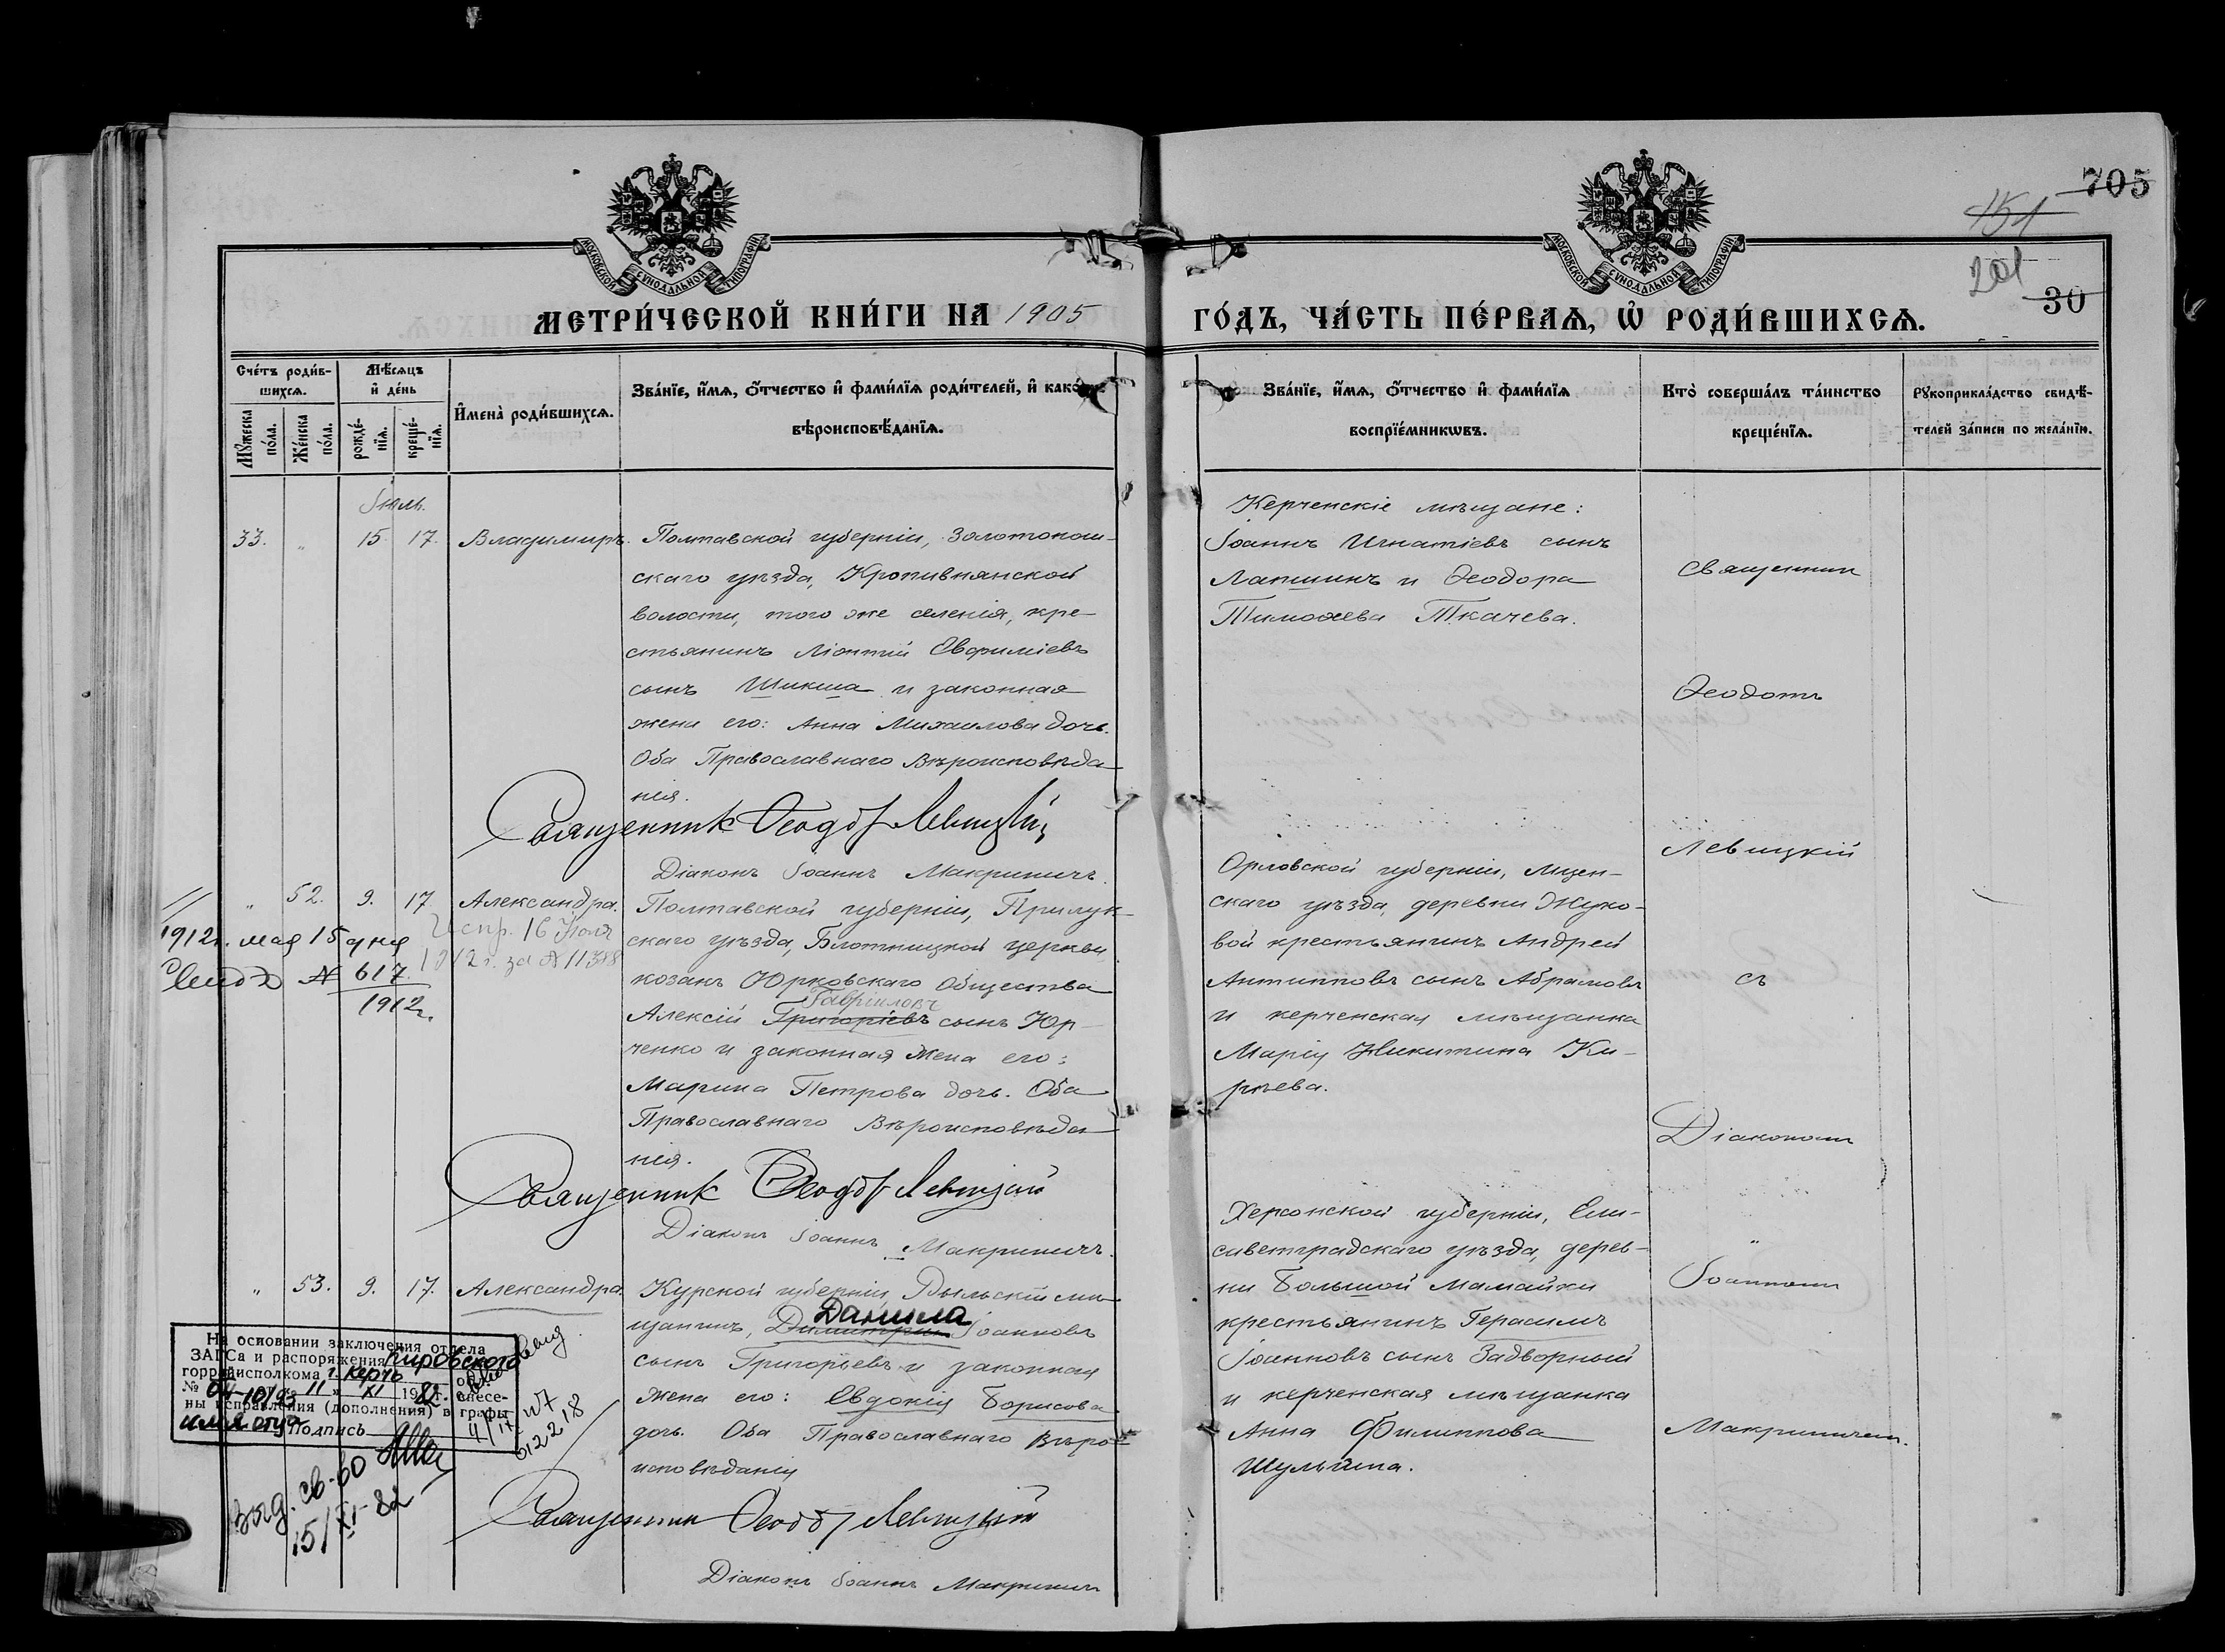 705
151
201
30
МОСКОВСКОЙ СѴНОДАЛЬНОЙ ТИПОГРАФІИ
МОСКОВСКОЙ СѴНОДАЛЬНОЙ ТИПОГРАФІИ
МЕТРИ́ЧЕСКОЙ КНИ́ГИ НА 1905
ГО́ДЪ, ЧА́СТЬ ПЕ́РВАѦ, Ѡ҆ РОДИ́ВШИХСѦ.
Счéтъ роди́в-
шихсѧ.
Мꙋ́жеска
по́ла.
Же́нска
по́ла.
Мѣ́сѧцъ
и҆ де́нь
рожде́-
нїѧ.
креще́-
нїѧ.
И҆мена̀ роди́вшихсѧ.
Зва́нїе, и҆́мѧ, о҆́тчество и҆ фами́лїѧ роди́телей, и҆ како́гѡ
вѣроисповѣ́данїѧ.
Зва́нїе, и҆́мѧ, о҆́тчество и҆ фами́лїѧ
воспрїе́мникѡвъ.
Кто̀ соверша́лъ та́инство
креще́нїѧ.
Рꙋкоприкла́дство свидѣ́-
телей за́писи по жела́нїю.
Іюль.
33. „ 15 17. Владимиръ.
Полтавской губерніи, Золотонош-
скаго уѣзда, Кропивнянской
волости, того же селенія, кре-
стьянинъ Ліонтій Евфиміевъ
сынъ Шикша и законная
жена его: Анна Михаилова дочь.
Оба Православнаго Вѣроисповѣда-
нія.
Священникъ Ѳеодотъ Левицкій
Діаконъ Іоаннъ Макриничъ.
Керченскіе мѣщане:
Іоаннъ Игнатіевъ сынъ
Лапшинъ и Ѳеодора
Тимоѳеева Ткачева.
Священник
Ѳеодотъ
Левицкій
съ
Діакономъ
„
Іоанномъ
Макриничем.
„ 52. 9. 17. Александра.
1912г. мая 15 дня
№ 617
1912г.
Испр. 16 Іюня
1912 г. за № 11388
Полтавской губерніи, Прилук-
скаго уѣзда, Блотницкой церкви
козакъ Юрковскаго Общества
Гавриловъ
Алексій Григоріевъ сынъ Юр-
ченко и законная жена его:
Марина Петрова дочь. Оба
Православнаго Вѣроисповѣда-
нія.
Священникъ Ѳеодотъ Левицкій
Діаконъ Іоаннъ Макриничъ.
Орловской губерніи, Мцен-
скаго уѣзда, деревни Жуко-
вой крестьянинъ Андрей
Антиповъ сынъ Абрамовъ
и керченская мѣщанка
Марія Никитина Ки-
рѣева.
„ 53. 9. 17. Александра.
Курской губерніи, Рыльскій мѣ-
Данила
щанинъ, Димитрій Іоанновъ
сынъ Григорьевъ и законная
жена его: Евдокія Борисова
дочь. Оба Православнаго Вѣро-
исповѣданія
Священникъ Ѳеодотъ Левицкій
Діаконъ Іоаннъ Макриничъ
Херсонской губерніи, Ели-
саветградскаго уѣзда, дерев-
ни Большой Мамайки
крестьянинъ Герасимъ
Іоанновъ сынъ Задворный
и керченская мѣщанка
Анна Филиппова
Шульгина.
На основании заключения отдела
ЗАГСа и распоряжения Кировского
горрайисполкома г. Керчь обл.
№ 04-10/93 „ 11 „ XI 1982 г. внесе-
ны исправления (дополнения) в графы
имя отца Подпись
Выд. св-во
15/XI-82